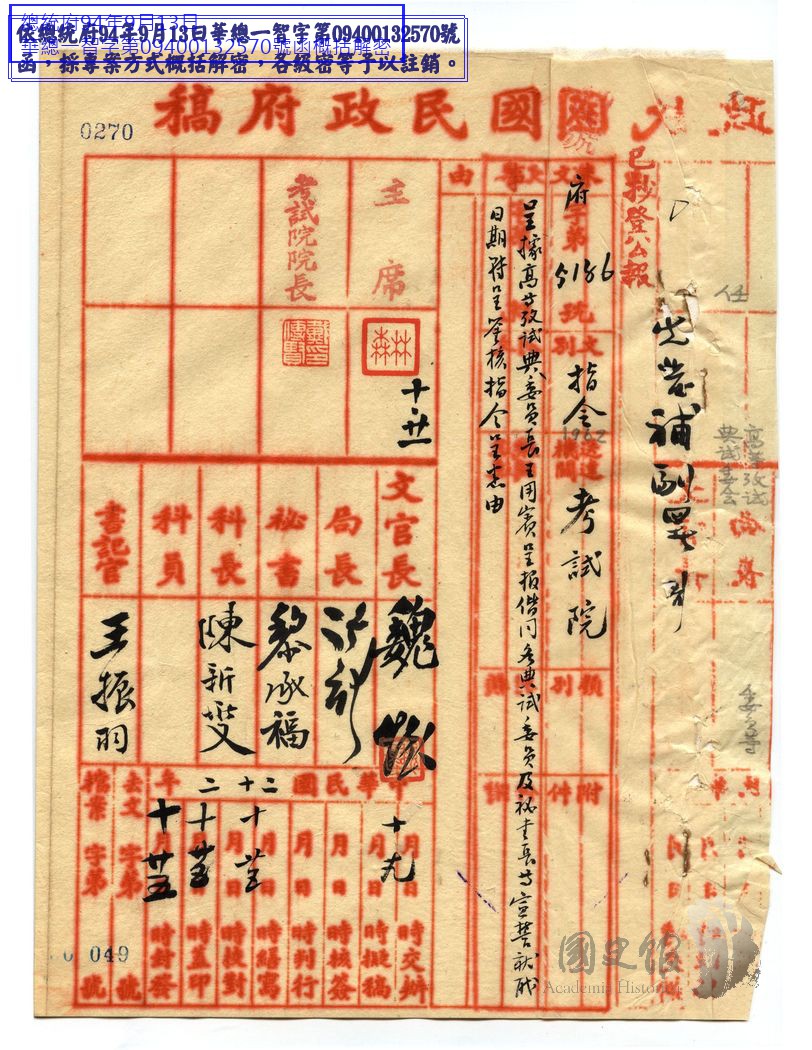 總統府94年9月13日
華總一智字第09400132570號函概括解密
依總統府94年9月13日華總一智字第09400132570號
函，採專案方式概括解密，各級密等予以註銷。
0270
國民政府稿
已抄登公報
任
高等考試
典試委會
委員等
府字第5186號
文別
指令
1962
送達機關
考試院
類別
附件
由
呈據高等考試典委員長王用賓呈報偕同各典試委員及秘書長等宣誓就職
日期附呈鑒核指令呈悉由
主席
林森
十 廿一
考試院院長
戴傳賢印
文官長
魏懷
局長
秘書
黎承福
科長
陳新燮
科員
書記官
王振羽
中華民國二十二年
十月九日時交辦
月日時擬稿
月日時核簽
月日時判行
月日時繕寫
月日時校對
月日時蓋印
月日時封發
去文字第號
檔案字第號
049
國史館
Academia Historica